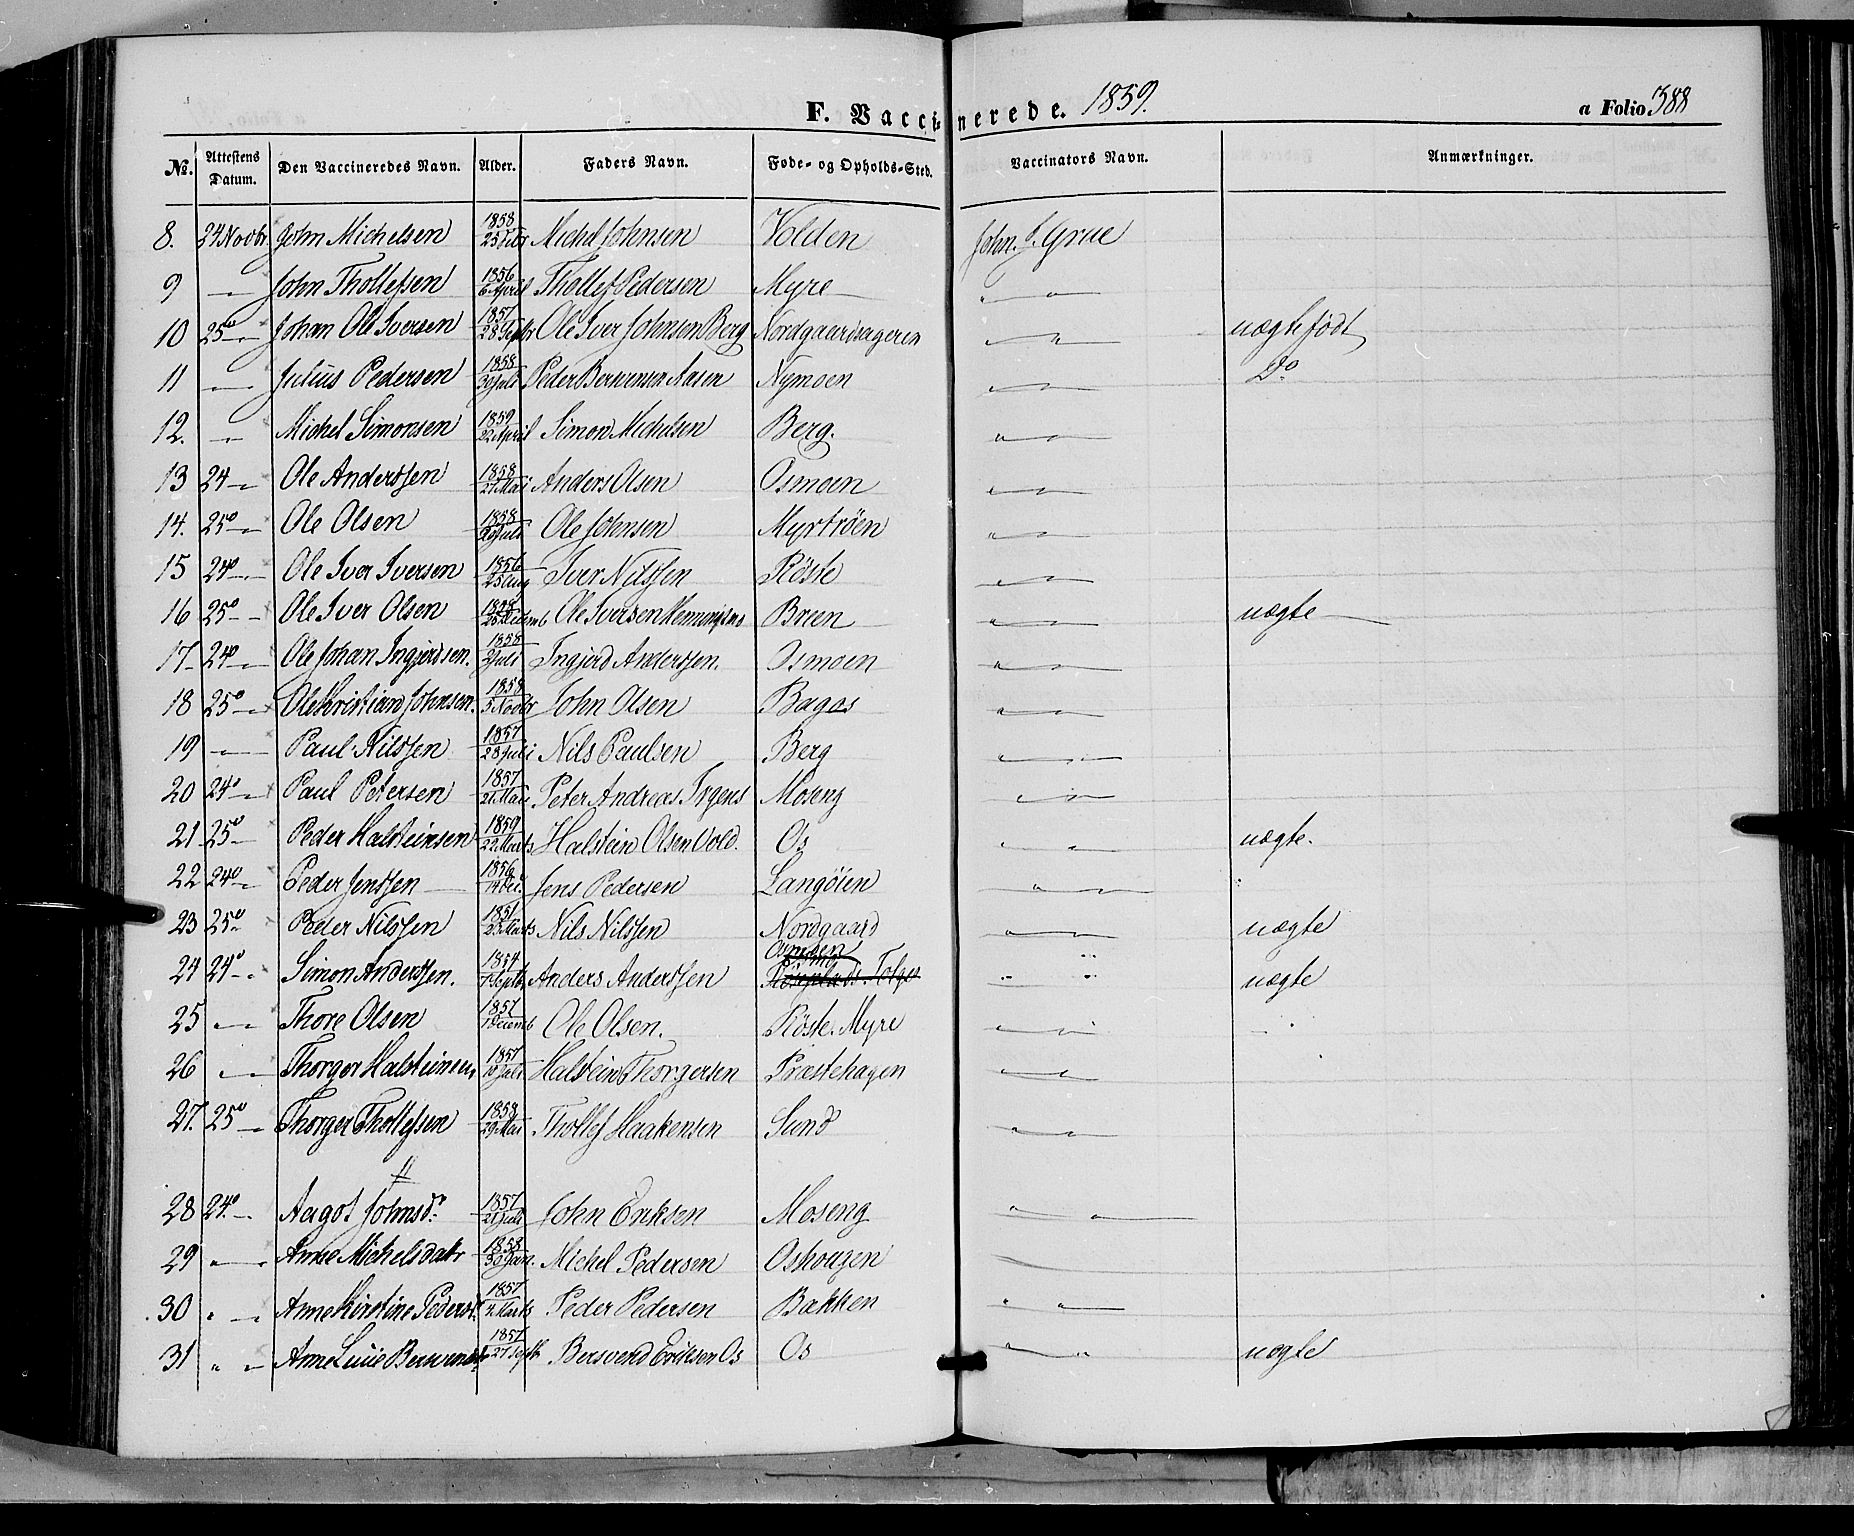 F. Vaccinerede. 1859. a Folio 388
No. Attestens Datum. Den Vaccineredes Navn. Alder. Faders Navn. Føde- og Opholds-Sted. Vaccinators Navn. Anmærkninger.
8. 24 Novbr. John Michelsen 1858 Michel Johnsen Volden John J. Grue
9 — John Thollefsen 1856 6 April Thollef Pedersen Myre — " "
10 25° — Johan Ole Iversen 1857 28 Septbr Ole Iver Johnsen Berg Nordgaardsageren " " uægte født
11 — Julius Pedersen 1858 30 Juli Peder Bersvensen Aasen Nymoen " " Do
12. — Michel Simonsen 1859 22 April Simon Michelsen Berg. " "
13 24 — Ole Anderssen 1858 21 Mai Anders Olsen Osmoen " "
14. 25° — Ole Olsen 1858 29 Juli Ole Johnsen Myrtrøen " "
15 24° — Ole Iver Iversen 1856 25 Aug Iver Nilssen Røste " "
16 25° — Ole Iver Olsen 1858 25 Decemb Ole Iversen Henningsmo Breen " " uægte —
17 — 24° — Ole Johan Ingjerdsen. 1858 2 Juli Ingjerd Anderssen. Osmoen " "
18 25° — Ole Kristian Johnsen. 1858 5 Novbr John Olsen Bagos " "
19 — Paul Nilssen 1857 28 Juli Nils Paulsen Berg " "
20 24° — Paul Petersen 1857 21 Mai Peter Andreas Trygens Moseng " "
21 25° Peder Halsteinsen 1859 22 Marts Halstein Olsen Vold. Os " " uægte.
22 24° — Peder Jenssen — 1856 14 Dec. Jens Pedersen Langøien " "
23 25° Peder Nilssen 1851 25 Marts Nils Nilssen Nordgaard " " uægte
24 24° — Simon Anderssen. 1854 7 Septbr Anders Anderssen " " uægte
25 " — Thore Olsen 1857 1 Decemb Ole Olsen. Røste. Myre " "
26 " — Thorger Halsteinsen 1857 10 Juli Halstein Thorgersen Præstehagen " "
27. 25° — Thorger Thollefsen 1858 29 Mai Thollef Haakensen Sund " "
28 24° — Aagot Johnsd: 1857 21 Juli John Eriksen Moseng " "
29 " — Anne Michelsdatr 1858 30 Jan. Michel Pedersen Oshougen
30 " — Anne Kirstine Pedersd: 1857 4 Marts Peder Pedersen Bakken " "
31 " " Anne Lucie Bersvensd: 1857 27 Septbr Bersvend Eriksen Os Os " " uægte